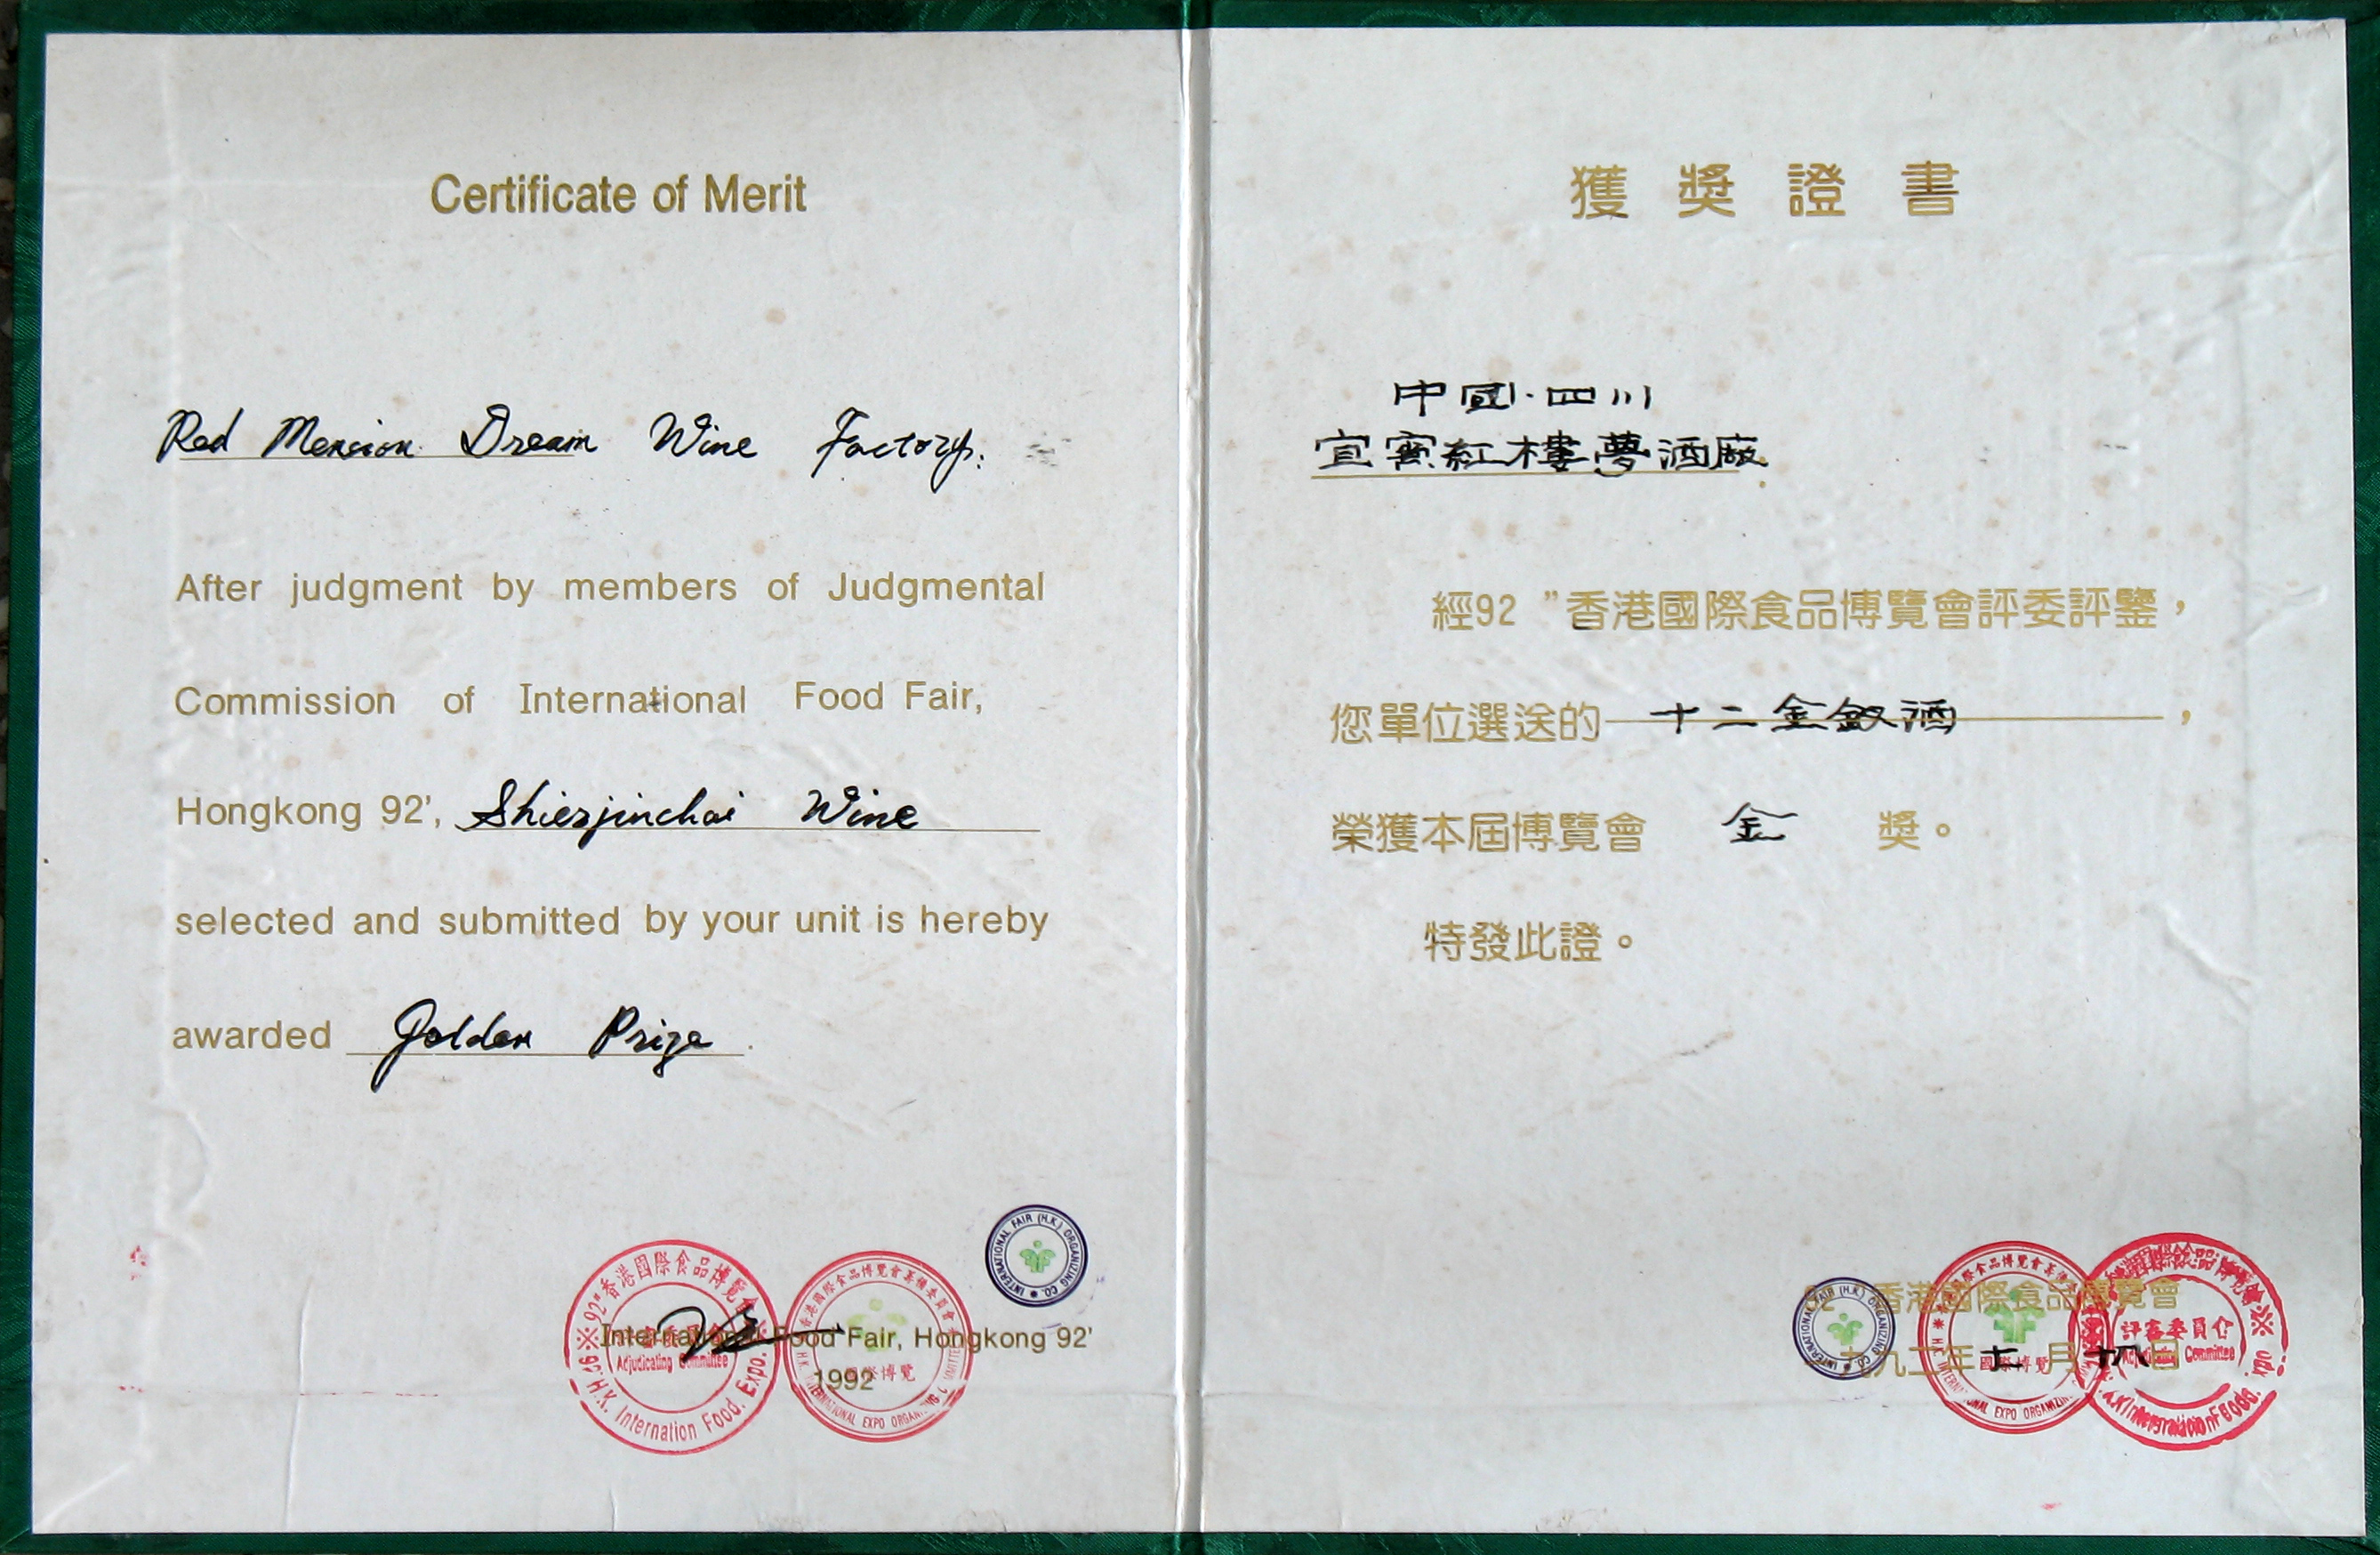 Certificate of Merit
Red Mension Dream Wine Factory.
After judgment by members of Judgmental
Commission of International Food Fair,
Hongkong 92', Shierjinchai Wine
selected and submitted by your unit is hereby
awarded Golden Prize.
International Food Fair, Hongkong 92'
1992
92"香港國際食品博覽會
Adjudicating Committee
H.K. Internation Food. Expo.
國際博覽
INTERNATIONAL FAIR (H.K.) ORGANIZING CO.
獲獎證書
中國·四川
宜賓紅樓夢酒廠
經92"香港國際食品博覽會評委評鑒，
您單位選送的十二金釵酒，
榮獲本屆博覽會 金 獎。
特發此證。
香港國際食品博覽會
九二年 月 日
INTERNATIONAL FAIR (H.K.) ORGANIZING CO.
國際博覽
評審委員會
Adjudicating Committee